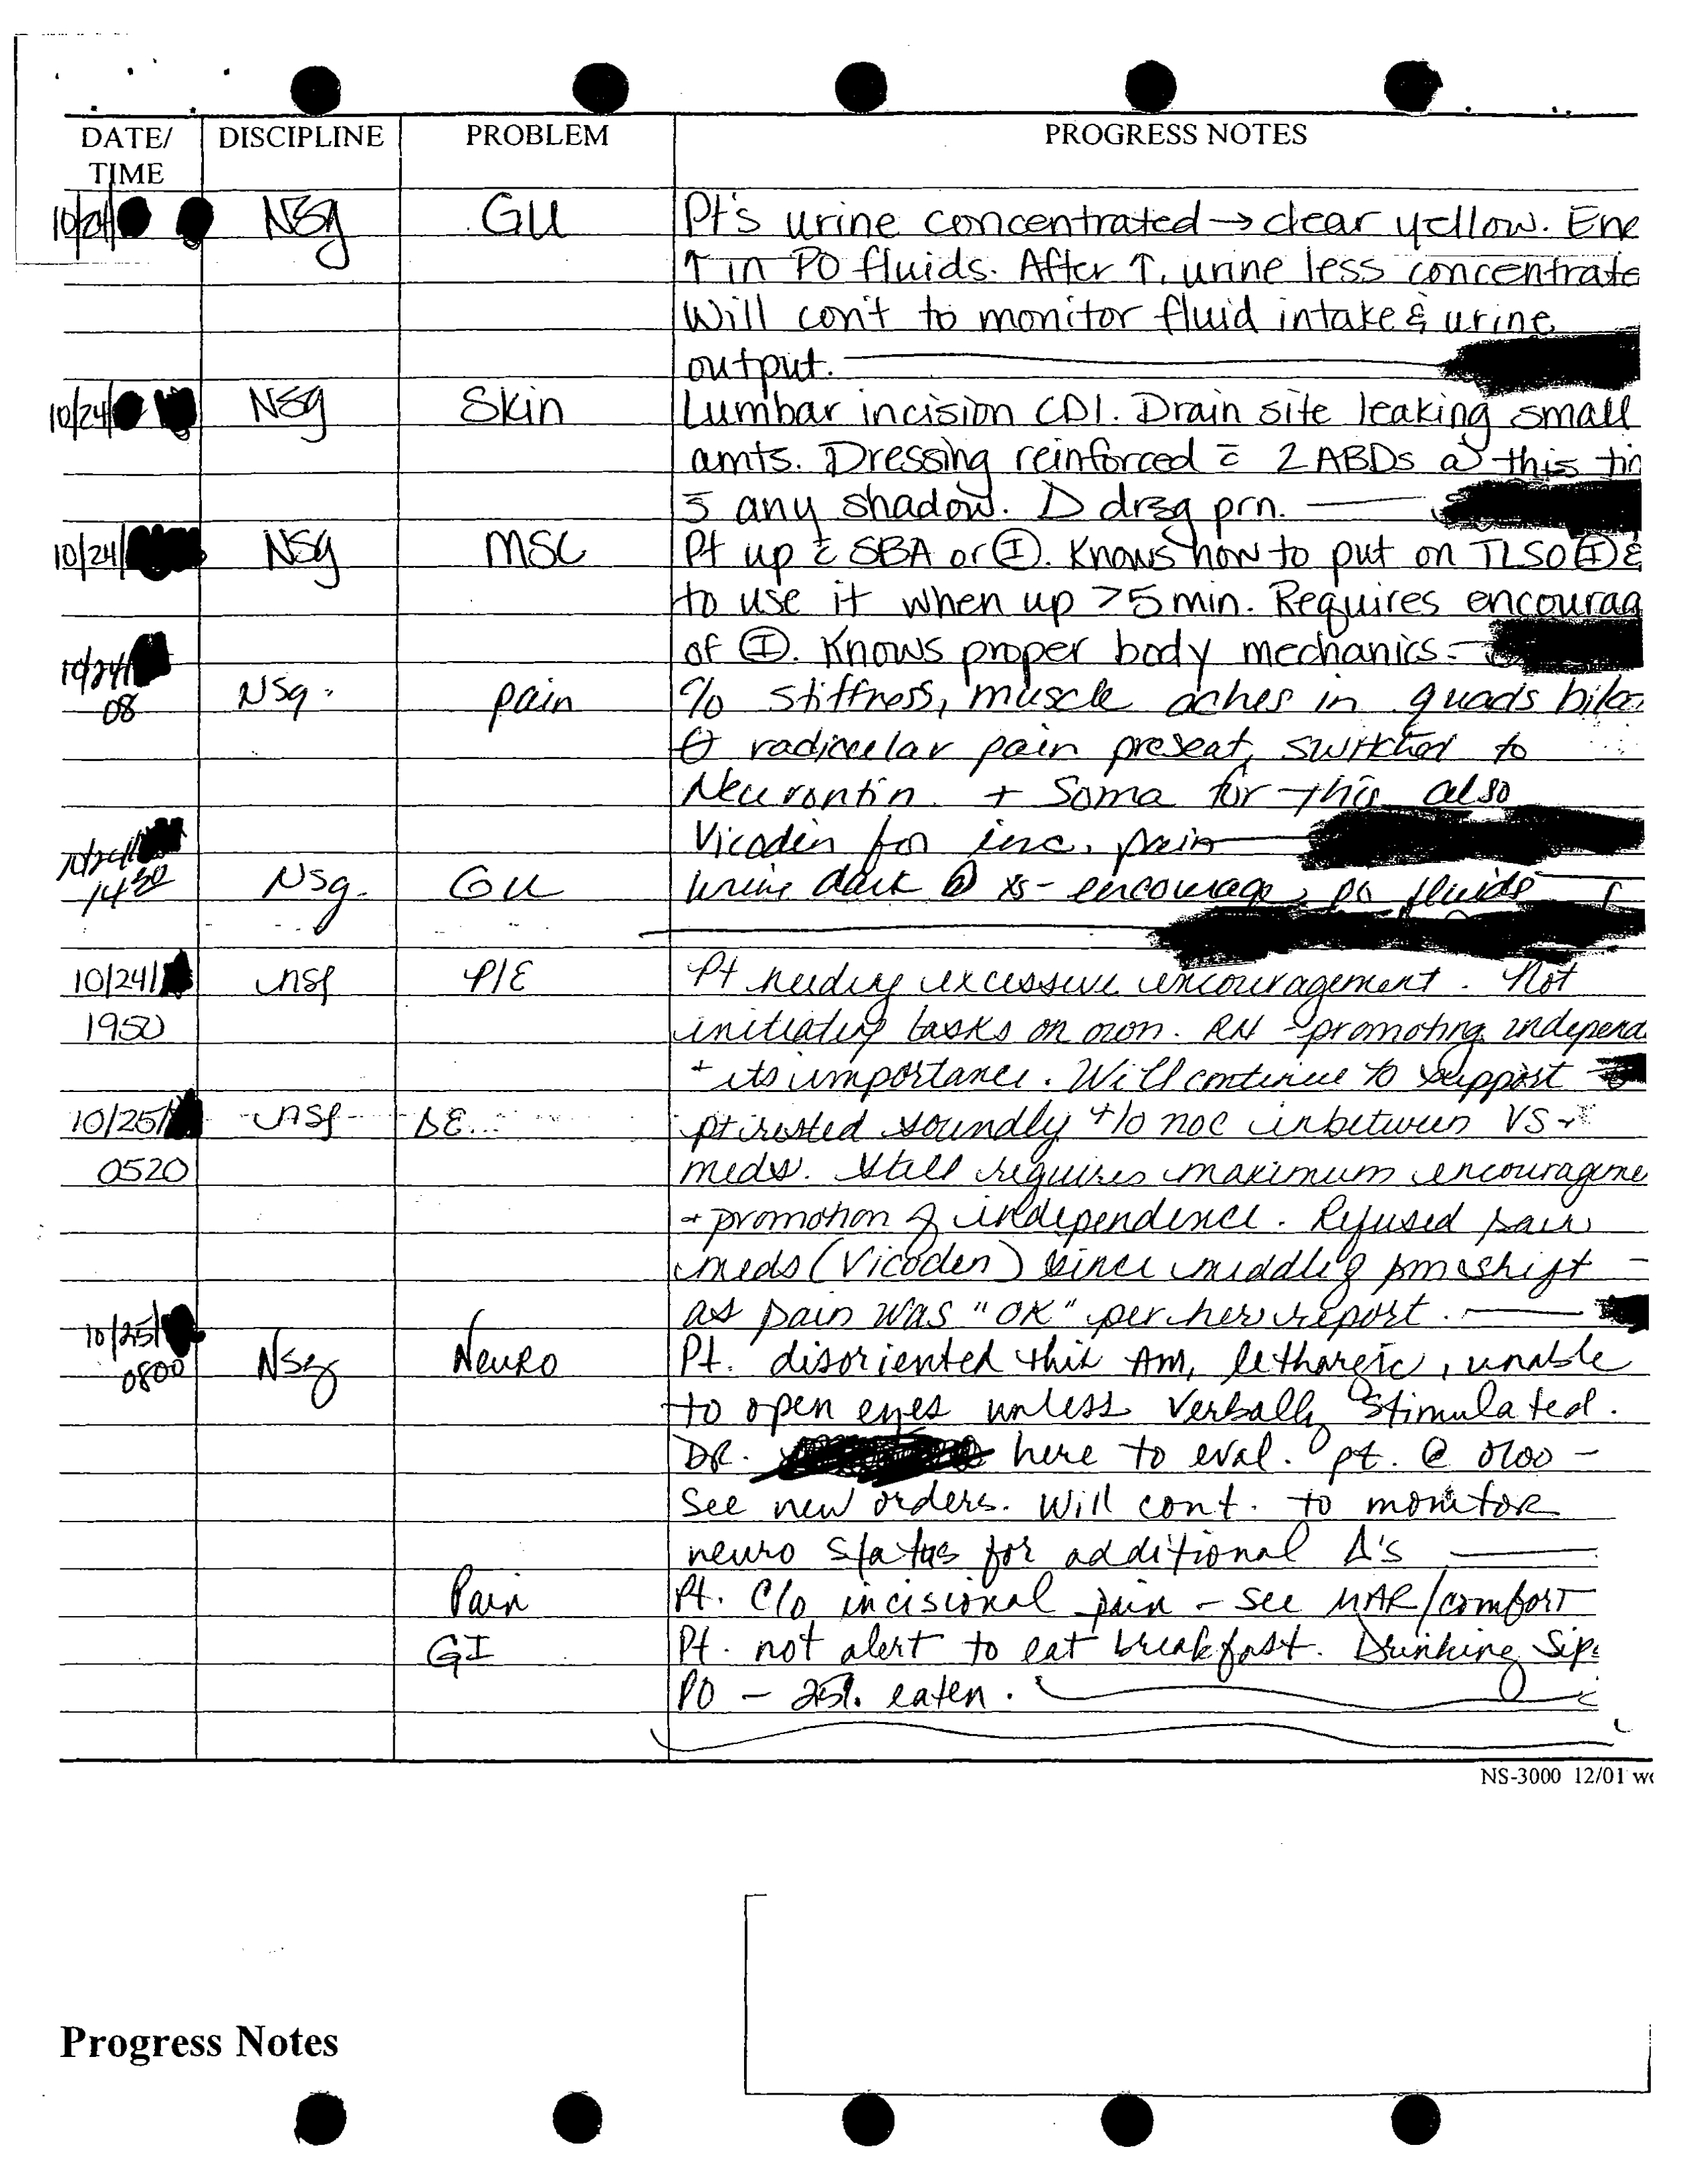 DATE/ TIME DISCIPLINE PROBLEM PROGRESS NOTES
Nsg GU Pt's urine concentrated → clear yellow. Enc
↑ in PO fluids. After ↑, urine less concentrate
Will con't to monitor fluid intake & urine
output.
10/24/ Nsg Skin Lumbar incision CDI. Drain site leaking small
amts. Dressing reinforced c̄ 2 ABDs @ this tim
s̄ any shadow. Δ drsg prn.
10/24/ Nsg MSC Pt up c̄ SBA or Ⓘ. Knows how to put on TLSO Ⓘ &
to use it when up >5 min. Requires encourag
of Ⓘ. Knows proper body mechanics.
10/24/
08 Nsg. pain c/o stiffness, muscle aches in quads bilat
radicular pain present, switched to
Neurontin + Soma for this also
Vicodin for inc. pain
10/24/
14 30 Nsg. GU Urine dark encourage po fluids
10/24/ nsg P/E Pt needing excessive encouragement. Not
1950 initiating tasks on own. RN promoting independ
+ its importance. Will continue to support
10/25/ nsg DE pt rested soundly t/o noc inbetween VS +
0520 meds. Still requires maximum encourageme
+ promotion of independence. Refused pain
meds (Vicoden) since middle of pm shift -
as pain was "OK" per her report.
10/25/
0800 Nsg Neuro Pt. disoriented this AM, lethargic, unable
to open eyes unless verbally stimulated.
DR. here to eval. pt. @ 0700 -
See new orders. Will cont. to monitor
neuro status for additional Δ's
Pain Pt. c/o incisional pain - see MAR/comfort
GI Pt. not alert to eat breakfast. Drinking sips
PO - 25% eaten.
NS-3000 12/01 w
Progress Notes